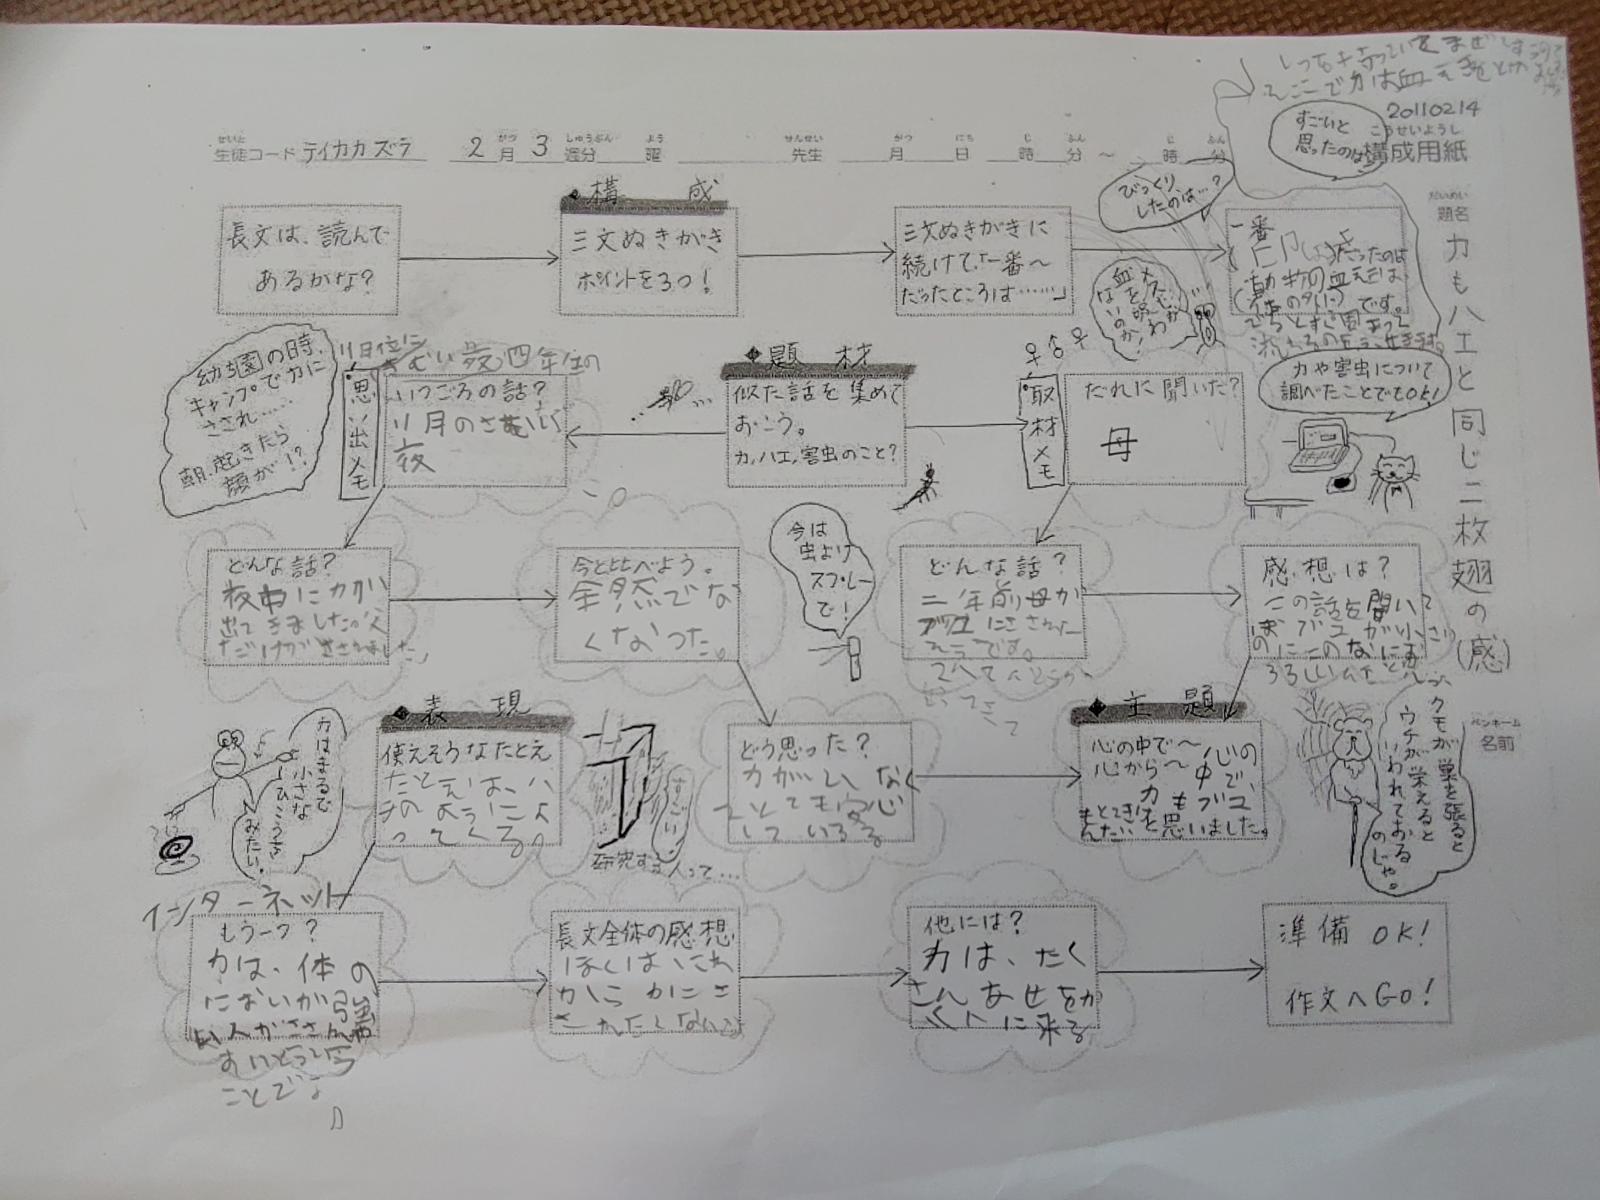 20110214
構成用紙
こうせいようし
生徒コード テイカカズラ 2月 3週分 曜 先生 月 日 時 分 〜 時 分
題名
力もハエと同じ二枚翅の(感)
ペンネーム
名前
すごいと
思ったのは
びっくり
したのは…?
長文は、読んで
あるかな?
◆構 成
三文ぬきがき
ポイントを3つ!
三文ぬきがきに
続けて、「一番〜
だったところは……」
一番
だったのは
です。
メスだ
血を吸わ
ないのか!
幼稚園の時、
キャンプでカに
さされ……
朝、起きたら
顔が!?
思い出メモ
四年生の
いつごろの話?
11月のさむい
夜
◆題 材
似た話を集めて
おこう。
カ,ハエ,害虫のこと?
♀♂♀
取材メモ
だれに聞いた?
母
カや害虫について
調べたことでもOK!
どんな話?
夜中にカが
出てきました。父
だけがさされました。
今と比べよう。
全然でな
くなった。
今は
虫よけ
スプレー
で!
どんな話?
二年前母が
ブユにさされた
そうです。
感想は?
この話を聞いて
ぼくはブユが小さい
のにこんなにお
そろしいんだと
カはまるで
小さな
ひこうき
みたい。
◆表 現
使えそうなたとえ
たとえば、ハ
チのようによ
ってくる。
すごい!
研究する人って…
どう思った?
カがいなく
てとても安心
している。
◆主 題
心の中で〜
心から〜
心の
中で
カもブユ
も
を思いました。
クモが巣を張ると
ウチが栄えると
いわれておる
のじゃ。
インターネット
もう一つ?
カは、体の
においが強
い人がささ
やすいという
ことで
長文全体の感想
ぼくはこれ
からカにさ
されたくない
他には?
カは、たく
さんあせをか
く人に来る
準備 OK!
作文へGO!